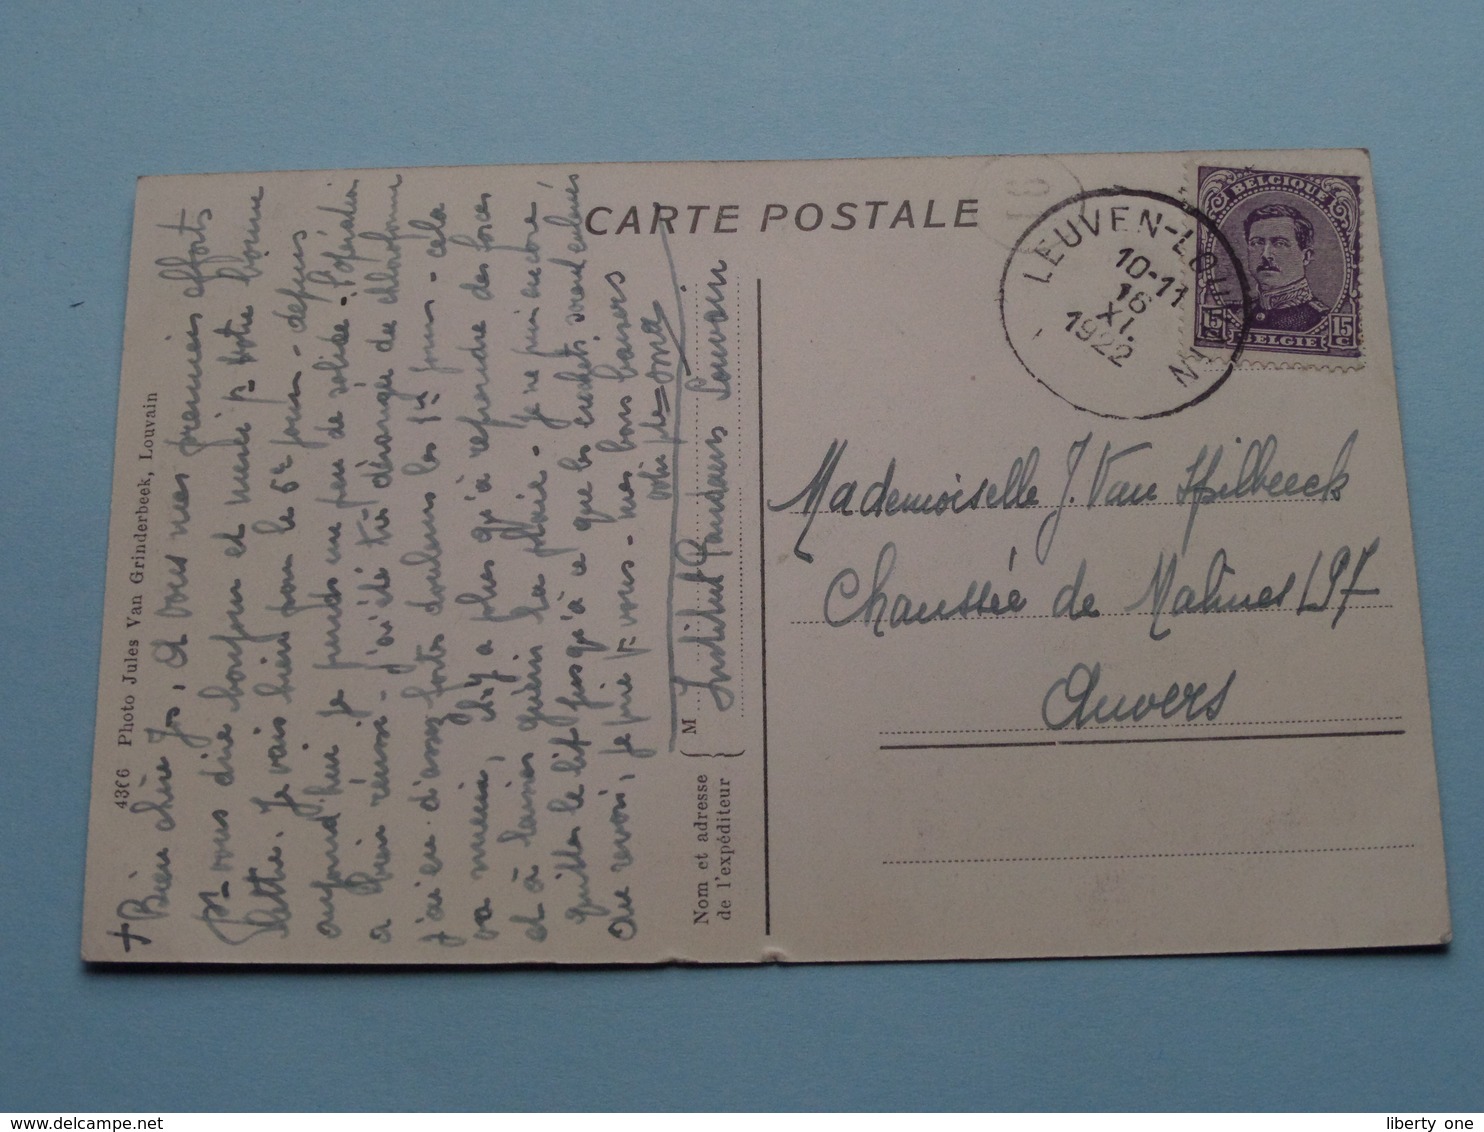 CARTE POSTALE
LEUVEN-LOUVAIN
10-11
16
XI
1922
BELGIQUE
15 C 15 C
BELGIE
Mademoiselle J. Van Spilbeeck
Chaussée de Malines 197
Anvers
43C6 Photo Jules Van Grinderbeek, Louvain
+ Bien chère Jos, A vous mes premiers efforts
pr vous dire bonjour et merci pr votre bonne
lettre. Je vais bien pour le 5e jour - depuis
aujourd'hui je prends un peu de solide - l'opération
a bien réussi - j'ai été très dérangée du chloroforme
j'ai eu d'assez forts douleurs les 1rs jours - cela
va mieux, il n'y a plus qu'à reprendre des forces
et à laisser guérir la plaie. Je ne puis encore
quitter le lit jusqu'à ce que les crochets soient enlevés
Au revoir, je prie pr vous - mes bons baisers
votre pte
Nom et adresse
de l'expéditeur
M
Institut Louvain
liberty one